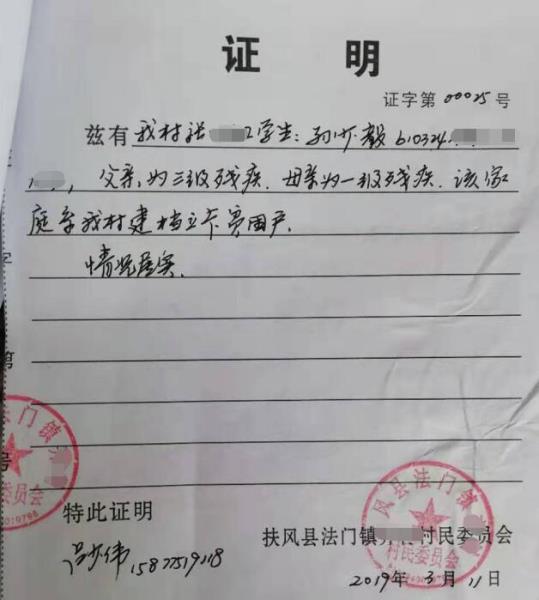 证 明
证字第 00025 号
兹有 我村 组学生：孙 毅 610324
，父亲为三级残疾，母亲为一级残疾，该家
庭系我村建档立卡贫困户，
情况属实。
特此证明
扶风县法门镇 村民委员会
15877519118
2019年 3月 11日
第
号
法门镇
委员会
风县法门镇
村民委员会